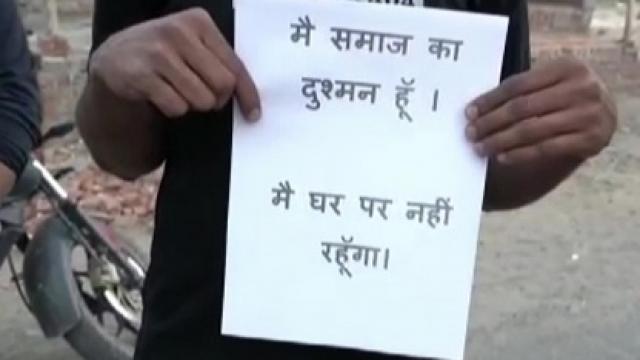 मै समाज का
दुश्मन हूँ ।
मै घर पर नहीं
रहूँगा।